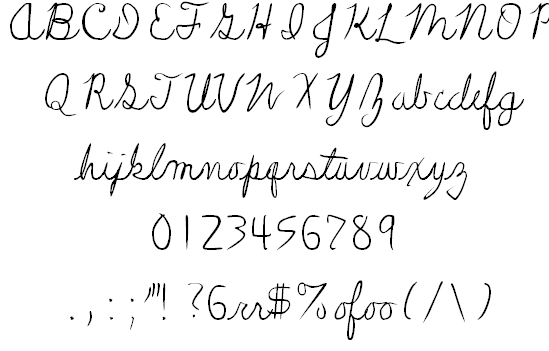 ABCDEFGHIJKLMNOP
QRSTUVWXYZabcdefg
hijklmnopqrstuvwxyz
0123456789
.,:;'"!?6rr$%ofoo(/\)